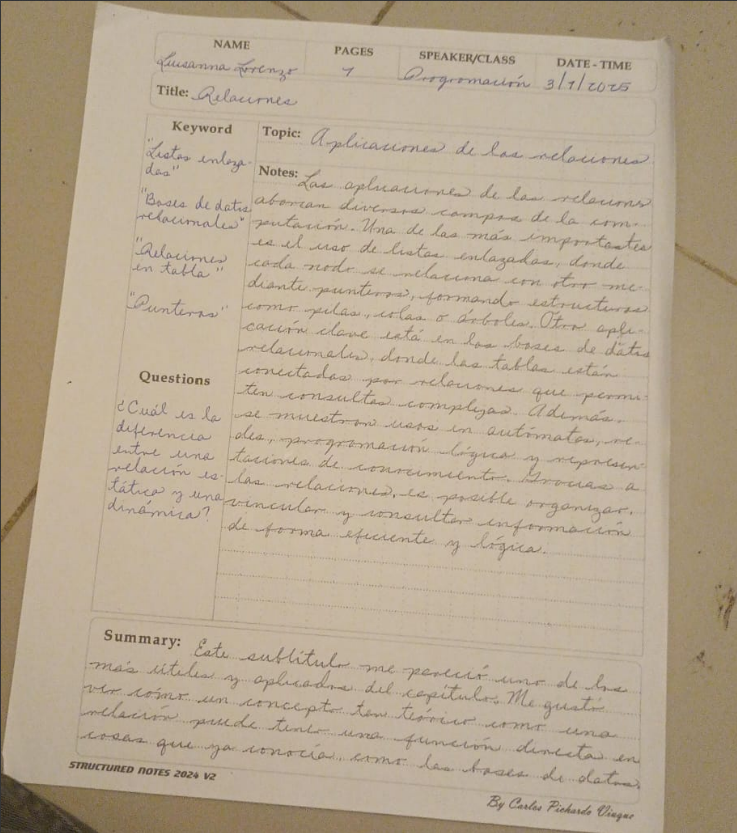 NAME PAGES SPEAKER/CLASS DATE - TIME
Luisanna Lorenzo 1 Programación 3/7/2025
Title: Relaciones
Keyword
"Listas enlaza-
das"
"Bases de datos
relacionales"
"Relaciones
en tabla"
"Punteros"
Questions
¿Cuál es la
diferencia
entre una
relación es-
tática y una
dinámica?
Topic: Aplicaciones de las relaciones
Notes: Las aplicaciones de las relaciones
abarcan diversos campos de la com-
putación. Una de las más importantes
es el uso de listas enlazadas, donde
cada nodo se relaciona con otro me-
diante punteros, formando estructuras
como pilas, colas o árboles. Otra apli-
cación clave está en las bases de datos
relacionales, donde las tablas están
conectadas por relaciones que permi-
ten consultas complejas. Además,
se muestran usos en autómatas, re-
des, programación lógica y represen-
taciones de conocimiento. Gracias a
las relaciones, es posible organizar,
vincular y consultar información
de forma eficiente y lógica.
Summary: Este subtítulo me pareció uno de los
más útiles y aplicados del capítulo. Me gustó
ver cómo un concepto tan teórico como una
relación puede tener una función directa en
cosas que ya conocía, como las bases de datos.
STRUCTURED NOTES 2024 V2
By Carlos Pichardo Viuque